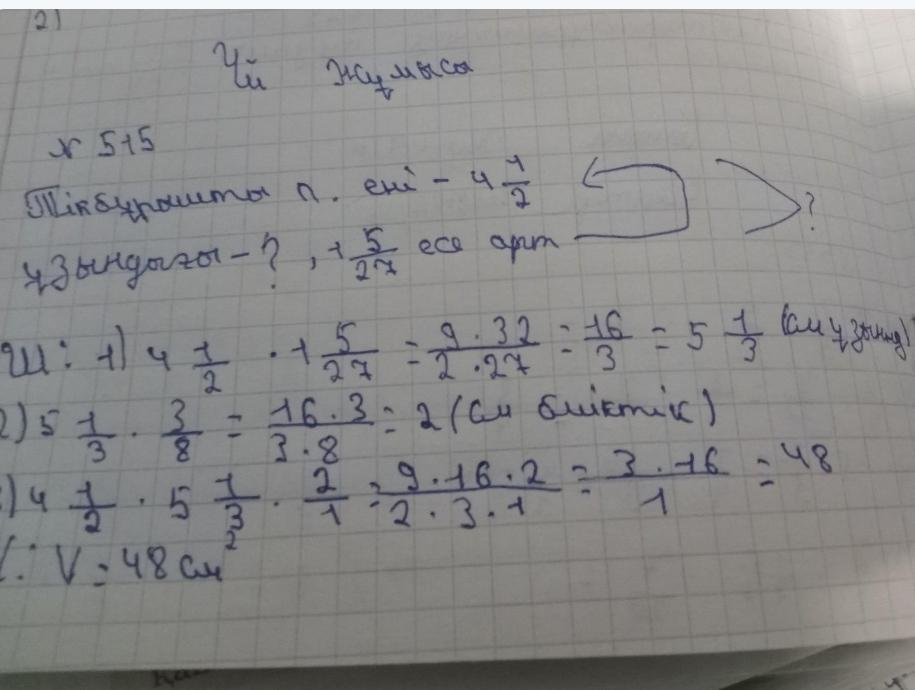 2)
Үй жұмысы
№ 515
Тікбұрышты п. ені - 4 1/2
ұзындығы - ? , 1 5/27 есе арт ?
Ш: 1) 4 1/2 · 1 5/27 = 9·32/2·27 = 16/3 = 5 1/3 (см ұзынд)
2) 5 1/3 · 3/8 = 16·3/3·8 = 2 (см биіктік)
) 4 1/2 · 5 1/3 · 2/1 = 9·16·2/2·3·1 = 3·16/1 = 48
: V = 48 см²